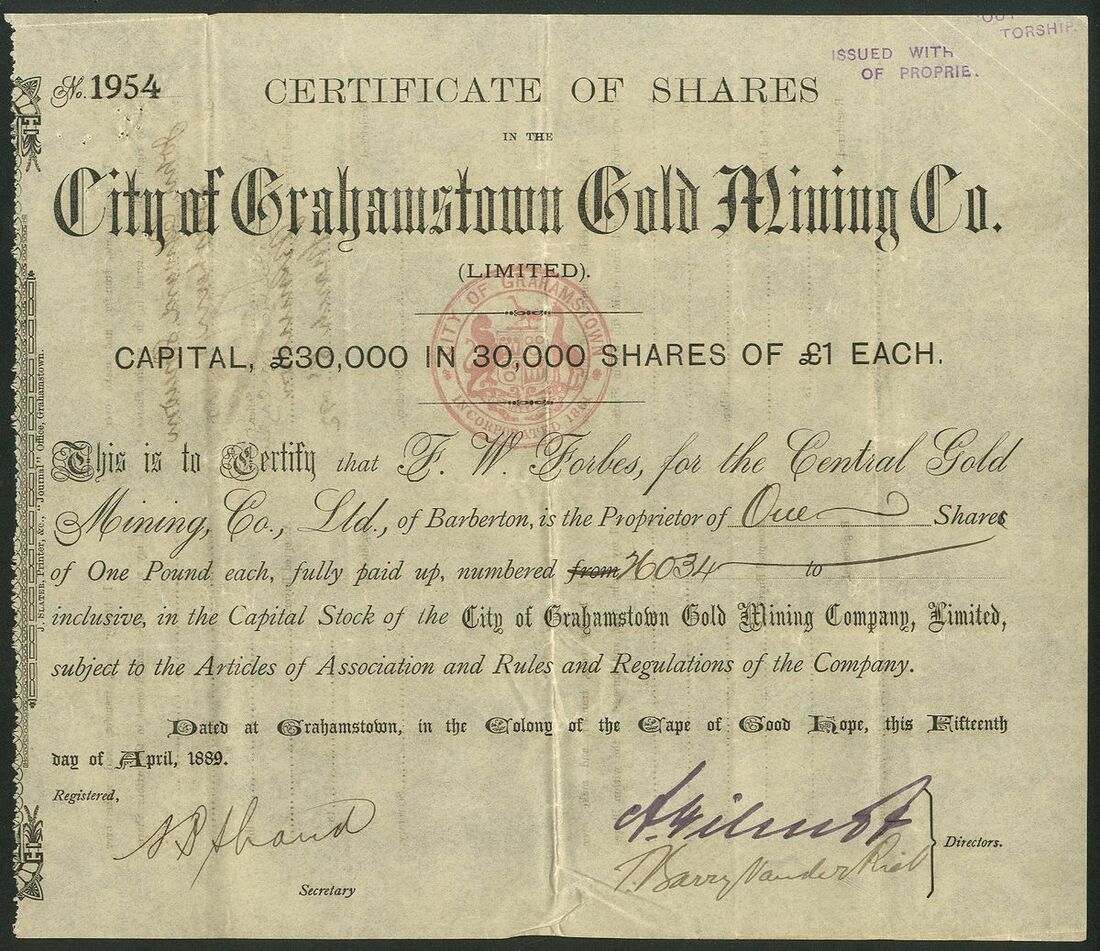 OUT
TORSHIP.
ISSUED WITH
OF PROPRIE.
No. 1954
CERTIFICATE OF SHARES
IN THE
City of Grahamstown Gold Mining Co.
(LIMITED).
CITY OF GRAHAMSTOWN
INCORPORATED 1861
CAPITAL, £30,000 IN 30,000 SHARES OF £1 EACH.
This is to Certify that F. W. Forbes, for the Central Gold
Mining, Co., Ltd., of Barberton, is the Proprietor of One Shares
of One Pound each, fully paid up, numbered from 26034 to
inclusive, in the Capital Stock of the City of Grahamstown Gold Mining Company, Limited,
subject to the Articles of Association and Rules and Regulations of the Company.
Dated at Grahamstown, in the Colony of the Cape of Good Hope, this Fifteenth
day of April, 1889.
Registered,
Secretary
A. Wilmot
T. Barry Vander Riet
Directors.
J. SLATER, Printer, &c., "Journal" Office, Grahamstown.